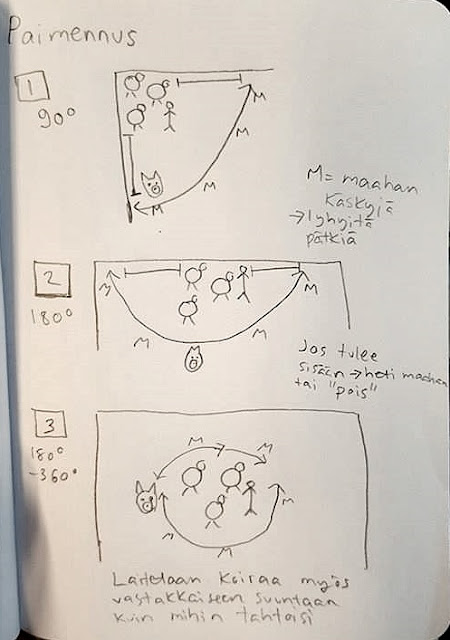 Paimennus
1
90°
M
M
M
M
M = maahan
käskyjä
→ lyhyitä
pätkiä
2
180°
M
M
M
M
Jos tulee
sisään → heti maahan
tai "pois"
3
180°
-360°
M
M
M
M
M
Laitetaan koiraa myös
vastakkaiseen suuntaan
kuin mihin tahtoisi